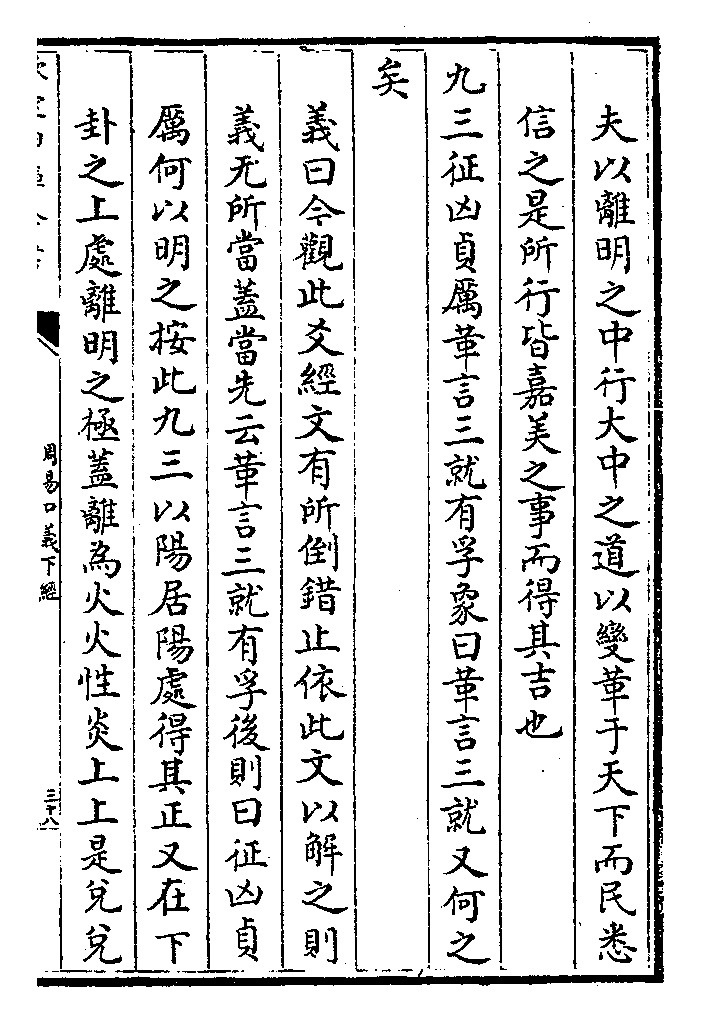 夫以離明之中行大中之道以變革于天下而民悉
信之是所行皆嘉美之事而得其吉也
九三征凶貞厲革言三就有孚象曰革言三就又何之
矣
義曰今觀此爻經文有所倒錯止依此文以解之則
義无所當蓋當先云革言三就有孚後則曰征凶貞
厲何以明之按此九三以陽居陽處得其正又在下
卦之上處離明之極蓋離為火火性炎上上是兌兌
周易口義下經
三十八